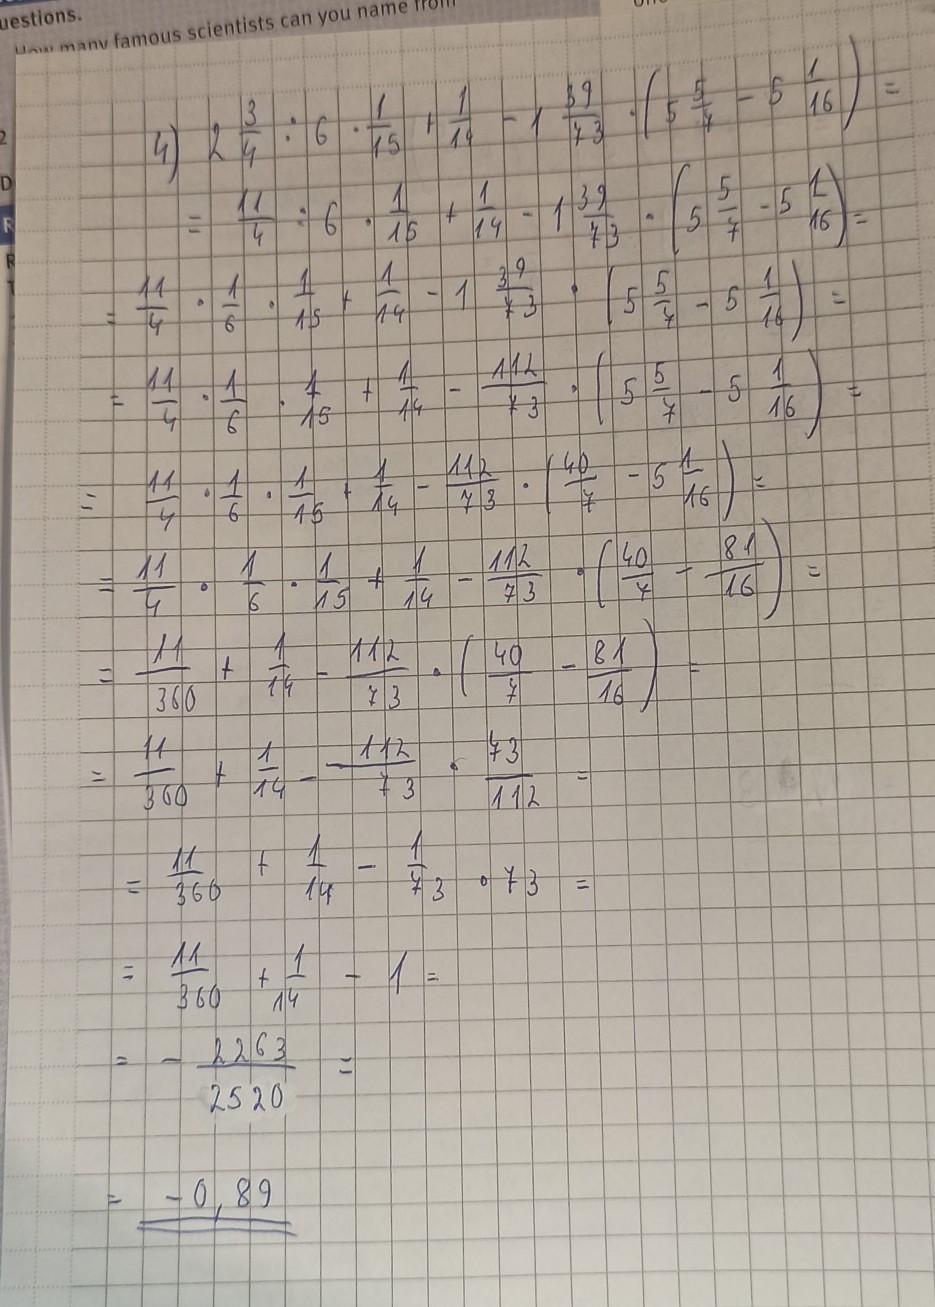 uestions.
How many famous scientists can you name from
4) 2 3/4 : 6 · 1/15 + 1/14 - 1 39/73 · (5 5/7 - 5 1/16) =
= 11/4 : 6 · 1/15 + 1/14 - 1 39/73 · (5 5/7 - 5 1/16) =
= 11/4 · 1/6 · 1/15 + 1/14 - 1 39/73 · (5 5/7 - 5 1/16) =
= 11/4 · 1/6 · 1/15 + 1/14 - 112/73 · (5 5/7 - 5 1/16) =
= 11/4 · 1/6 · 1/15 + 1/14 - 112/73 · (40/7 - 5 1/16) =
= 11/4 · 1/6 · 1/15 + 1/14 - 112/73 · (40/7 - 81/16) =
= 11/360 + 1/14 - 112/73 · (40/7 - 81/16) =
= 11/360 + 1/14 - 112/73 · 73/112 =
= 11/360 + 1/14 - 1/73 · 73 =
= 11/360 + 1/14 - 1 =
= - 2263/2520 =
= -0,89